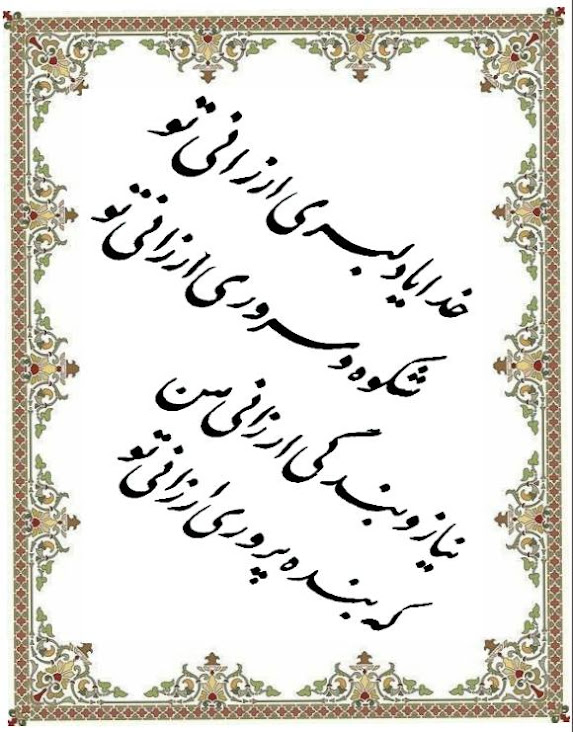 خدایا دلبری ارزانی تو
شکوه و سروری ارزانی تو
نیاز و بندگی ارزانی من
که بنده پروری ارزانی تو